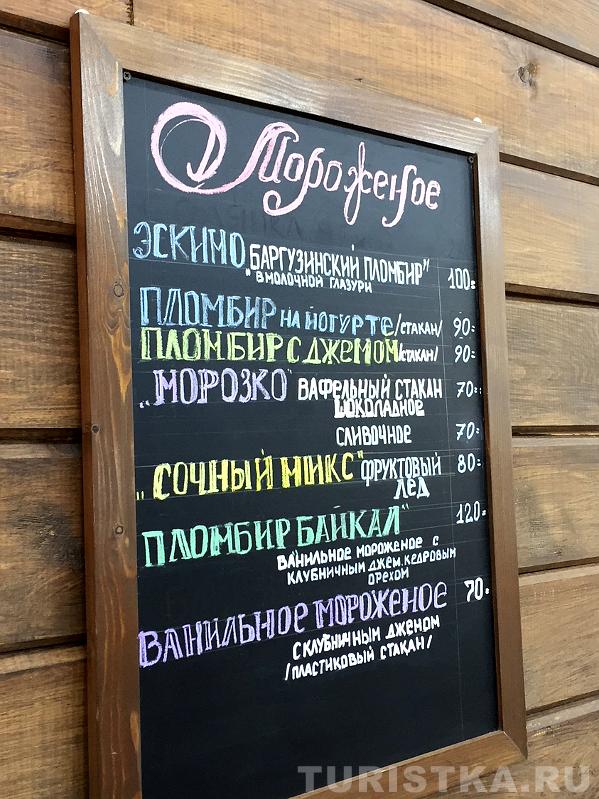 Мороженое
ЭСКИМО БАРГУЗИНСКИЙ ПЛОМБИР" 100=
"В МОЛОЧНОЙ ГЛАЗУРИ
ПЛОМБИР НА ЙОГУРТЕ /СТАКАН/ 90=
ПЛОМБИР С ДЖЕМОМ /СТАКАН/ 90=
„МОРОЗКО" ВАФЕЛЬНЫЙ СТАКАН 70=
ШОКОЛАДНОЕ
СЛИВОЧНОЕ 70=
„СОЧНЫЙ МИКС" ФРУКТОВЫЙ 80=
ЛЁД
ПЛОМБИР БАЙКАЛ" 120=
ВАНИЛЬНОЕ МОРОЖЕНОЕ С
КЛУБНИЧНЫМ ДЖЕМ. КЕДРОВЫМ
ОРЕХОМ
ВАНИЛЬНОЕ МОРОЖЕНОЕ 70=
С КЛУБНИЧНЫМ ДЖЕМОМ
/ПЛАСТИКОВЫЙ СТАКАН/
TURISTKA.RU